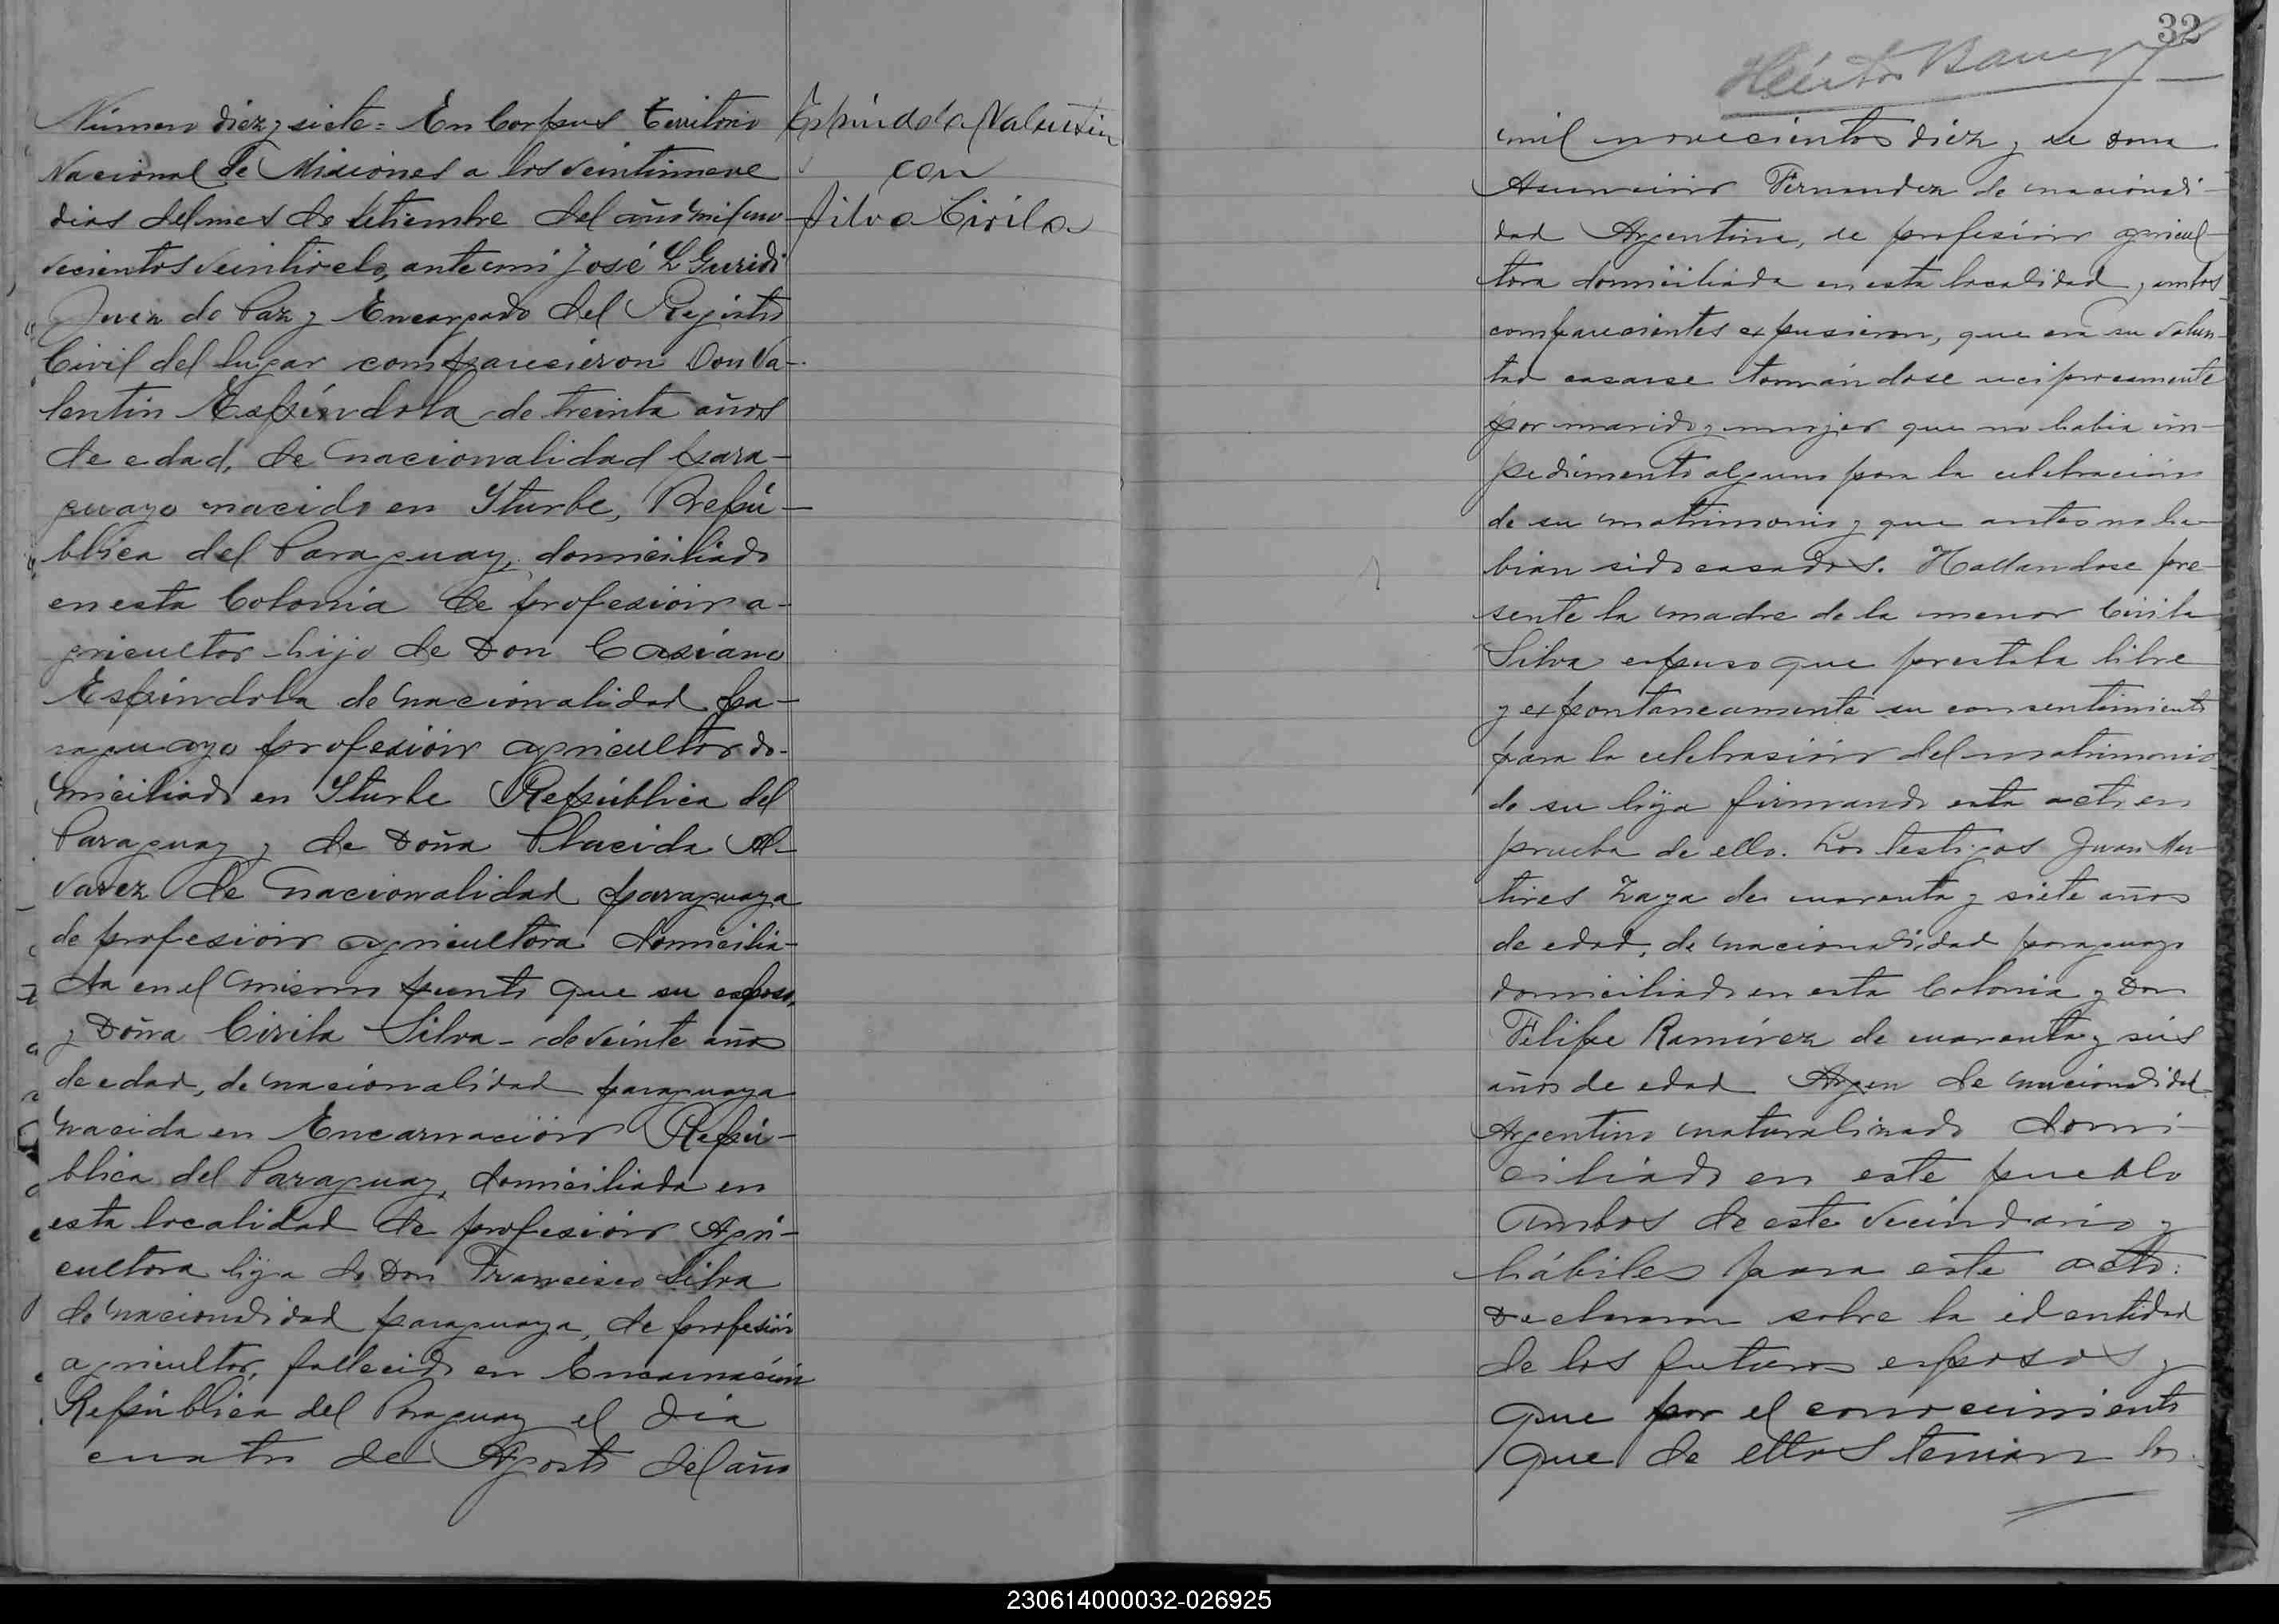 Número diez y siete = En Corpus Territorio
Nacional de Misiones a los veintinueve
dias del mes de setiembre del año mil no-
vecientos veintiocho, ante mi José L Guridi
Juez de Paz y Encargado del Registro
Civil del lugar comparecieron Don Va-
lentin Espíndola de treinta años
de edad, de nacionalidad para-
guayo nacido en Yturbe, Repú-
blica del Paraguay, domiciliado
en esta Colonia de profesión a-
gricultor hijo de Don Casiano
Espíndola de nacionalidad pa-
raguayo profesión agricultor do-
miciliado en Yturbe República del
Paraguay y de Doña Placida Al-
varez de nacionalidad paraguaya
de profesión agricultora domicilia-
da en el mismo punto que su esposo,
y Doña Cirila Silva - de veinte años
de edad, de nacionalidad paraguaya
nacida en Encarnación Repú-
blica del Paraguay, domiciliada en
esta localidad de profesión Agri-
cultora hija de Don Francisco Silva
de nacionalidad paraguaya, de profesión
agricultor, fallecido en Encarnación
República del Paraguay el dia
cuatro de Agosto del año
Espíndola Valentin
con
Silva Cirila
32
Héctor
mil novecientos diez y de Dona
Asunción Fernandez de nacionali-
dad Argentina, de profesión agricul-
tora domiciliada en esta localidad, ambos
comparecientes expusieron, que era su volun-
tad casarse tomándose reciprocamente
por marido y mujer que no habia im-
pedimento alguno para la celebración
de su matrimonio y que antes no ha-
bian sido casados. Hallandose pre-
sente la madre de la menor Cirila
Silva expuso que prestaba libre
y expontaneamente su consentimiento
para la celebrasión del matrimonio
de su hija firmando esta acto en
prueba de ello. Los testigos Juan Mar-
tires Zaya de cuarenta y siete años
de edad, de nacionalidad paraguayo
domiciliado en esta Colonia y Don
Felipe Ramírez de cuarenta y seis
años de edad Argen de nacionalidad
Argentino naturalizado domi-
ciliado en este pueblo
ambos de este vecindario y
hábiles para este acto:
Declararon sobre la identidad
de los futuros esposos y
que por el conocimiento
que de ellos tenian los
230614000032-026925